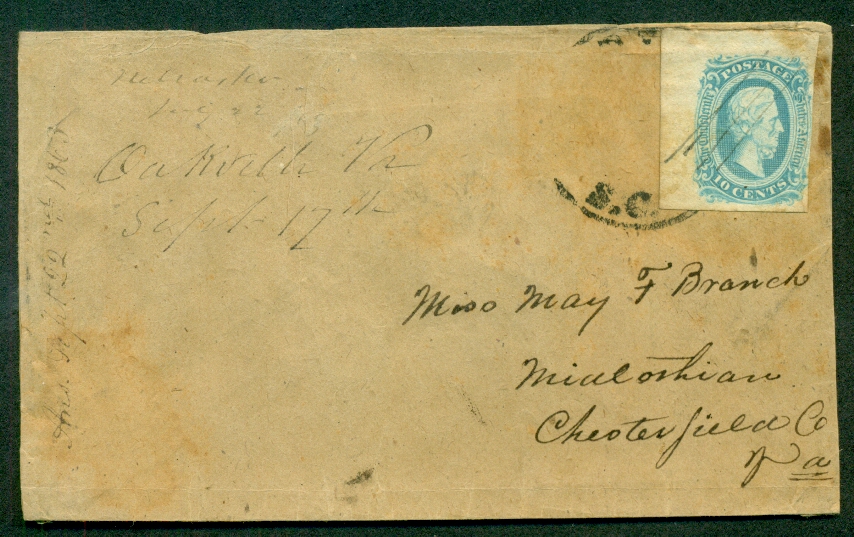 Oakville Va
Sept 17th
Ans. Sept 22nd 1863
POSTAGE
The Confederate States of America
10 CENTS
S.C.
Miss May F Branch
Midlothian
Chesterfield Co
Va